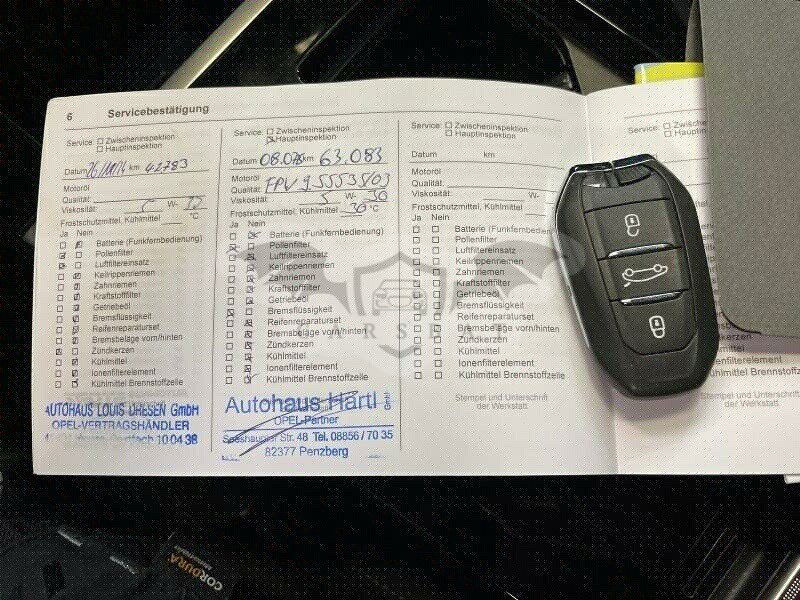 6 Servicebestätigung
Service: Zwischeninspektion
Hauptinspektion
Datum km 42783
Motoröl
Qualität:
Viskosität: W-
Frostschutzmittel, Kühlmittel °C
Ja Nein
Batterie (Funkfernbedienung)
Pollenfilter
Luftfiltereinsatz
Keilrippenriemen
Zahnriemen
Kraftstofffilter
Getriebeöl
Bremsflüssigkeit
Reifenreparaturset
Bremsbeläge vorn/hinten
Zündkerzen
Kühlmittel
Ionenfilterelement
Kühlmittel Brennstoffzelle
AUTOHAUS LOUIS DRESEN GmbH
OPEL-VERTRAGSHÄNDLER
10 04 38
Service: Zwischeninspektion
Hauptinspektion
Datum km 63.083
Motoröl
Qualität: 
Viskosität: 5 W- 30
Frostschutzmittel, Kühlmittel
-30 °C
Ja Nein
Batterie (Funkfernbedienung)
Pollenfilter
Luftfiltereinsatz
Keilrippenriemen
Zahnriemen
Kraftstofffilter
Getriebeöl
Bremsflüssigkeit
Reifenreparaturset
Bremsbeläge vorn/hinten
Zündkerzen
Kühlmittel
Ionenfilterelement
Kühlmittel Brennstoffzelle
Autohaus Hartl GmbH
OPEL-Partner
Seeshaupter Str. 48 Tel. 08856 / 70 35
82377 Penzberg
Service: Zwischeninspektion
Hauptinspektion
Datum km
Motoröl
Qualität:
Viskosität: W-
Frostschutzmittel, Kühlmittel
Ja Nein
Batterie (Funkfernbedienung)
Pollenfilter
Luftfiltereinsatz
Keilrippenriemen
Zahnriemen
Kraftstofffilter
Getriebeöl
Bremsflüssigkeit
Reifenreparaturset
Bremsbeläge vorn/hinten
Zündkerzen
Kühlmittel
Ionenfilterelement
Kühlmittel Brennstoffzelle
Stempel und Unterschrift
der Werkstatt
Service:
Datum
Stempel und Unterschrift
der Werkstatt
CORDURA